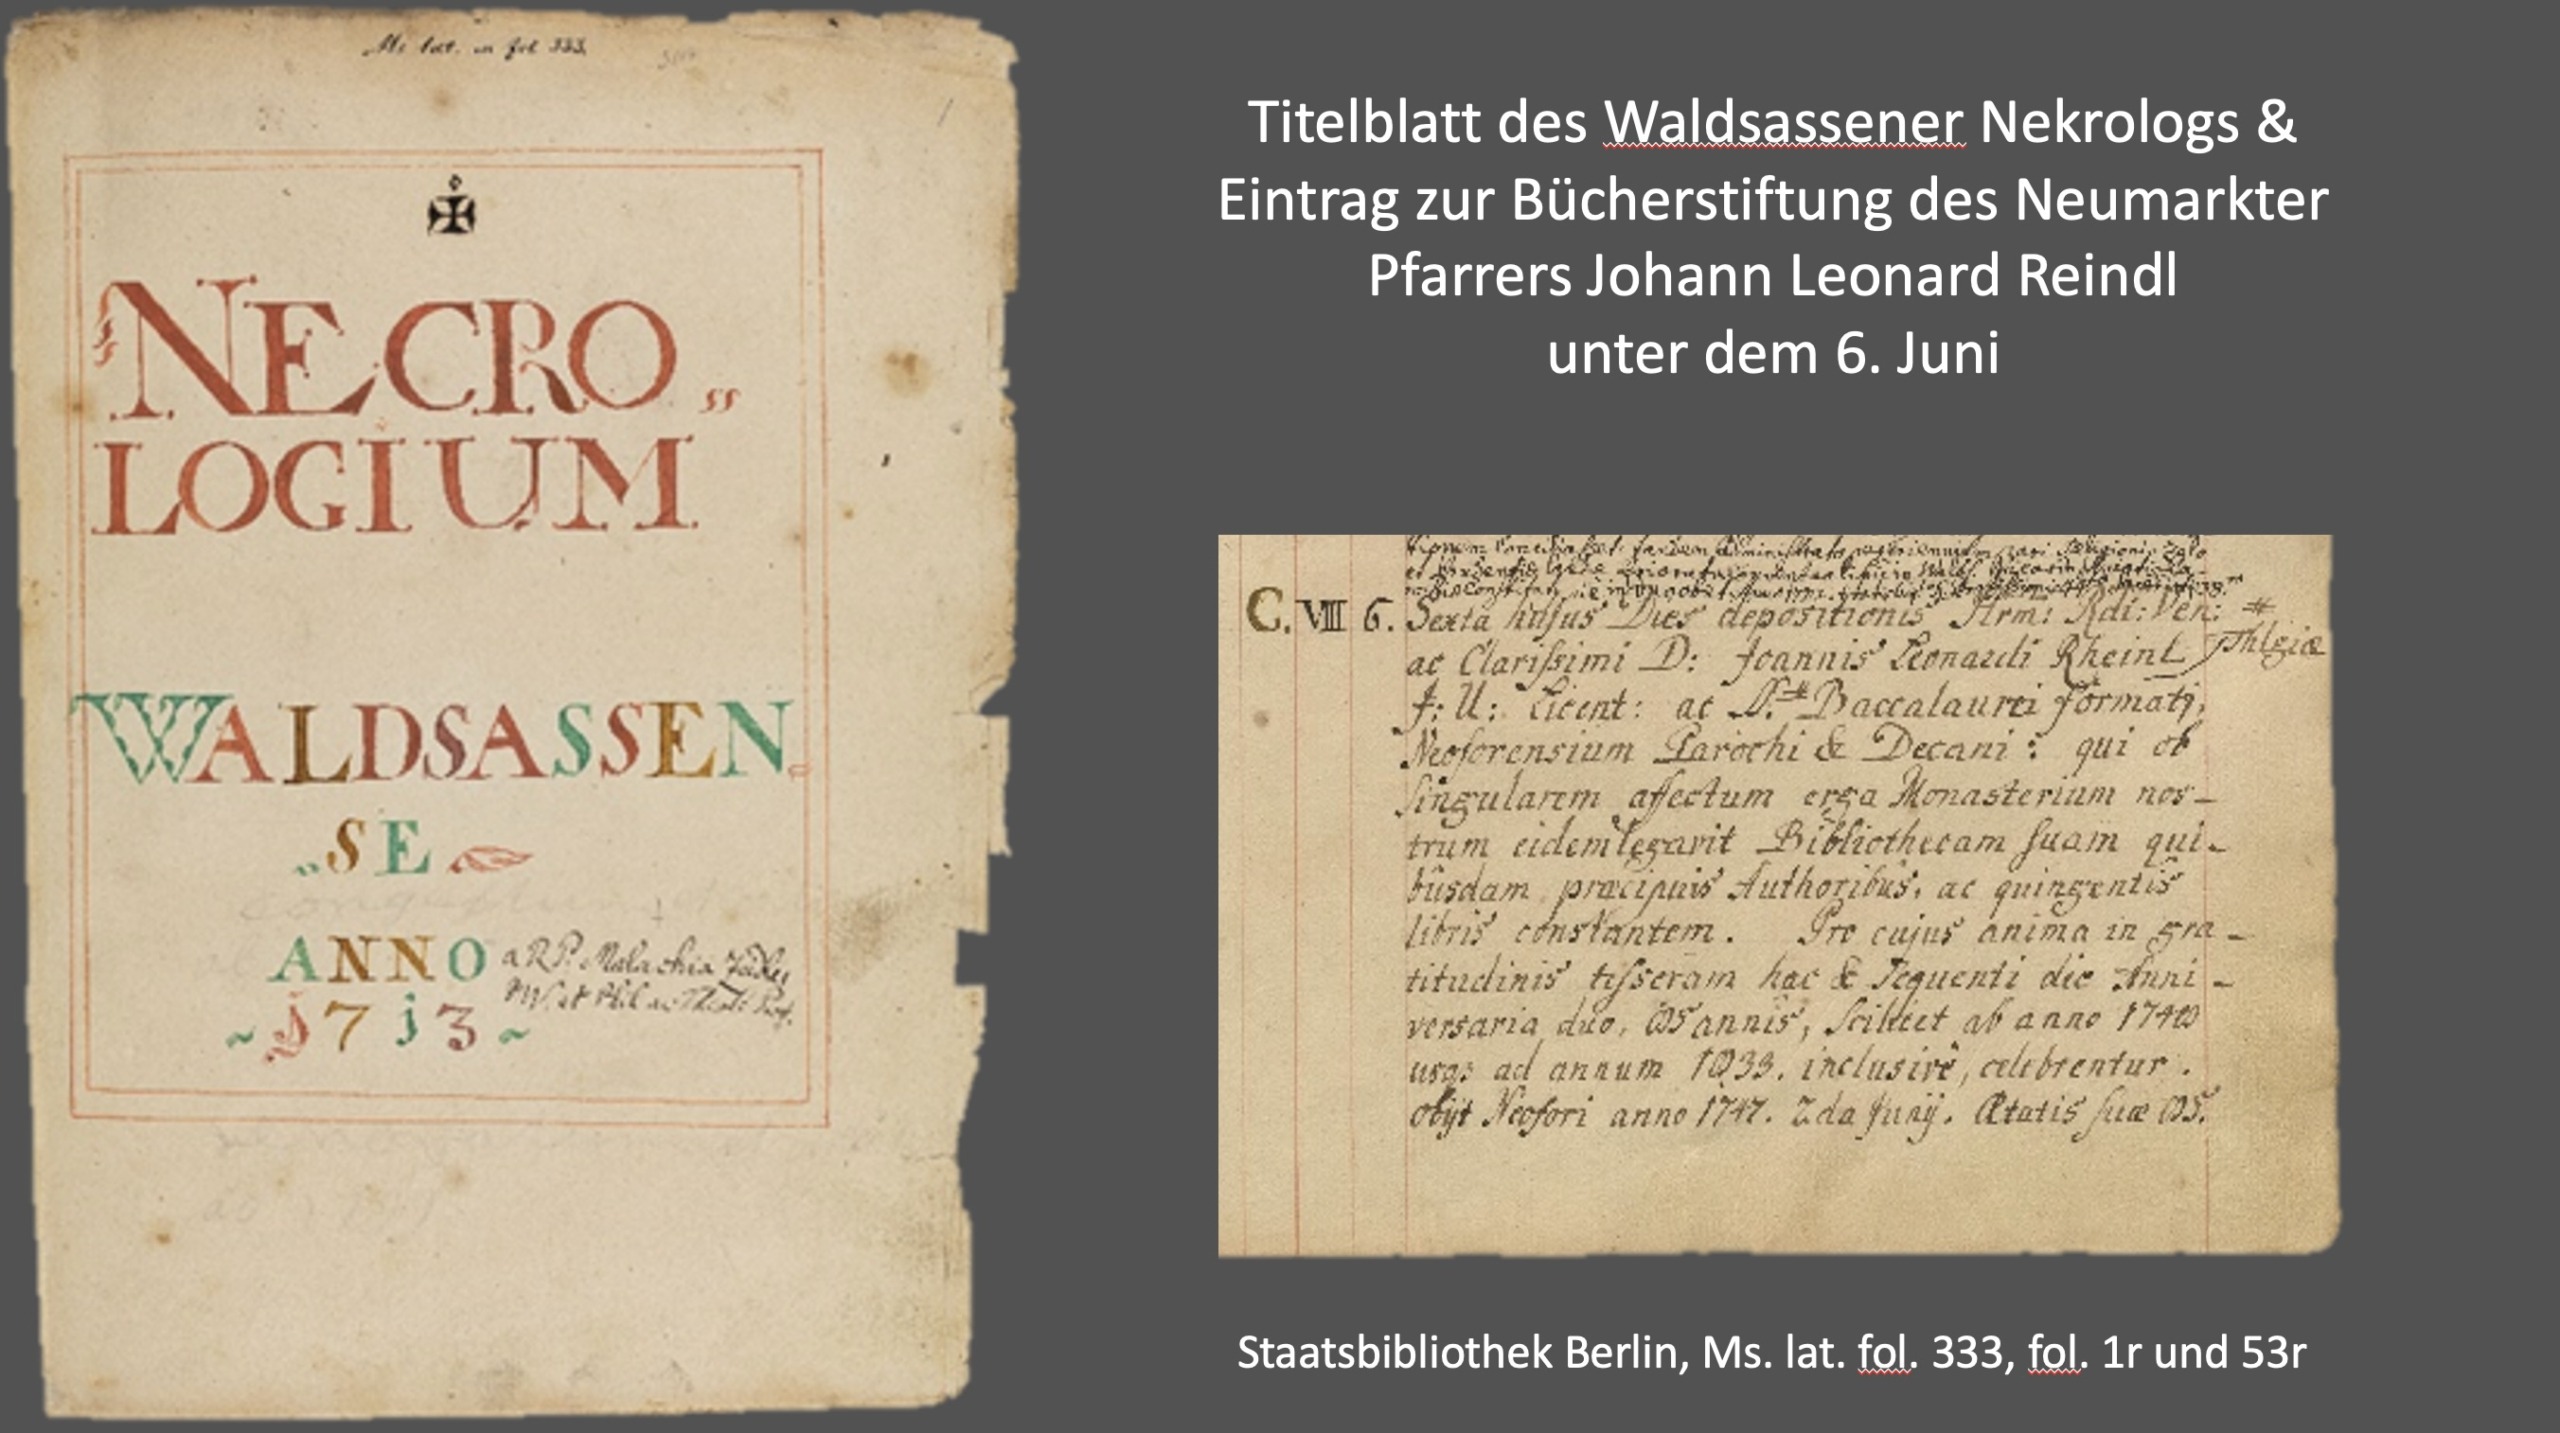 Ms. lat. in fol 333.
NECRO„
LOGIUM
WALDSASSEN„
„SE
ANNO
a R. P. Malachia
1713
Titelblatt des Waldsassener Nekrologs &
Eintrag zur Bücherstiftung des Neumarkter
Pfarrers Johann Leonard Reindl
unter dem 6. Juni
C. VIII 6. Sexta hujus Dies depositionis Rdi: Ven:
ac Clarissimi D: Joannis Leonardi Rheinl # Thlgiæ
J: U: Licent: ac # Baccalaurei formati,
Neoforensium Parochi & Decani: qui ob
singularem affectum erga Monasterium nos-
trum eidem legavit Bibliothecam suam qui-
busdam præcipuis Authoribus, ac quingentis
libris constantem. Pro cujus anima in gra-
titudinis tesseram hac & sequenti die Anni-
versaria duo, annis, scilicet ab anno
usqs ad annum inclusivè, celebrentur.
obijt Neofori anno 1747. 2da Junij. Ætatis suæ
Staatsbibliothek Berlin, Ms. lat. fol. 333, fol. 1r und 53r